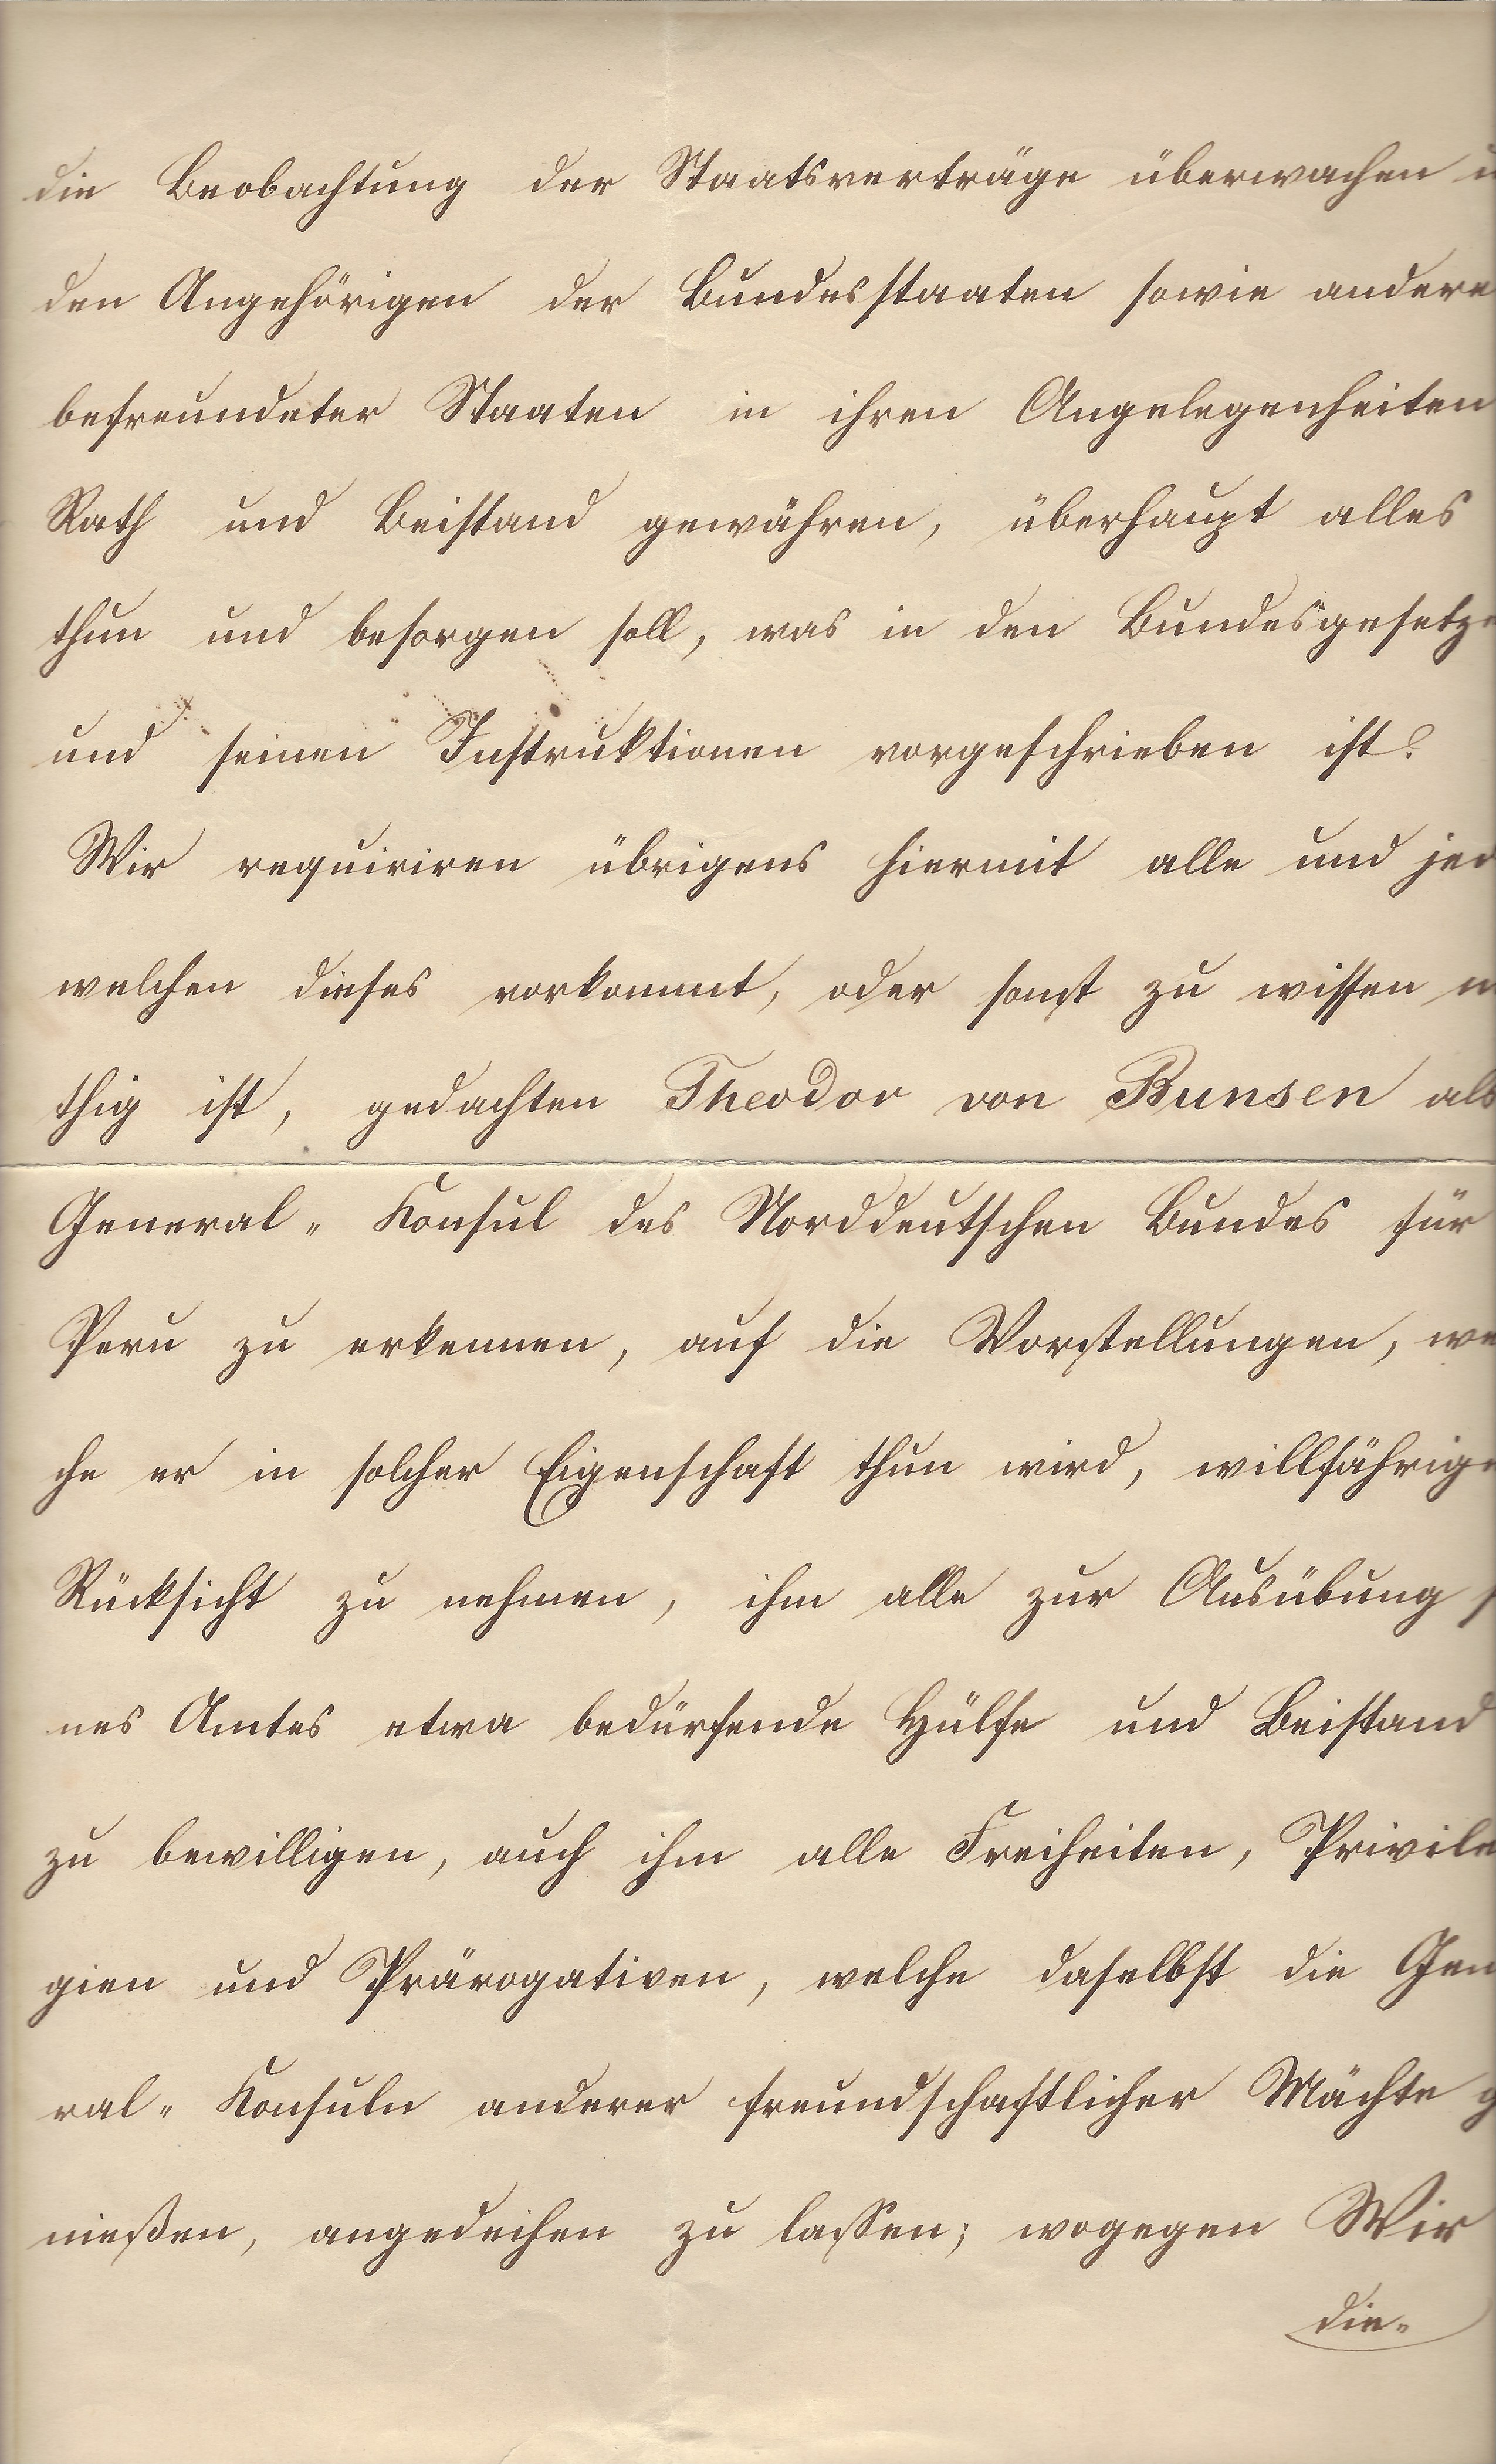 die Beobachtung der Staatsverträge überwachen u
den Angehörigen der Bundesstaaten sowie andere
befreundeter Staaten in ihren Angelegenheiten
Rath und Beistand gewähren, überhaupt alles
thun und besorgen soll, was in den Bundesgesetze
und seinen Instruktionen vorgeschrieben ist.
Wir requiriren übrigens hiermit alle und jed
welchen dieses vorkommt, oder sonst zu wissen n
thig ist, gedachten Theodor von Bunsen als
General-Konsul des Norddeutschen Bundes für
Peru zu erkennen, auf die Vorstellungen, we
che er in solcher Eigenschaft thun wird, willfährige
Rücksicht zu nehmen, ihm alle zur Ausübung s
nes Amtes etwa bedürfende Hülfe und Beistand
zu bewilligen, auch ihm alle Freiheiten, Privile
gien und Prärogativen, welche daselbst die Gen
ral-Konsuln anderer freundschaftlicher Mächte g
nießen, angedeihen zu lassen; wogegen Wir
die-